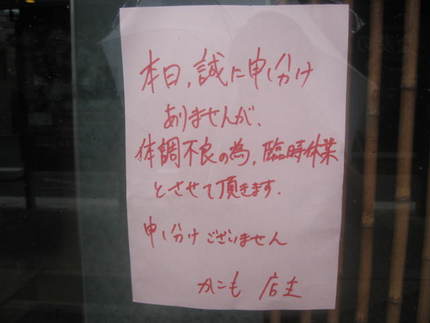 本日、誠に申し分け
ありませんが、
体調不良の為、臨時休業
とさせて頂きます.
申し分けございません
かこも 店主